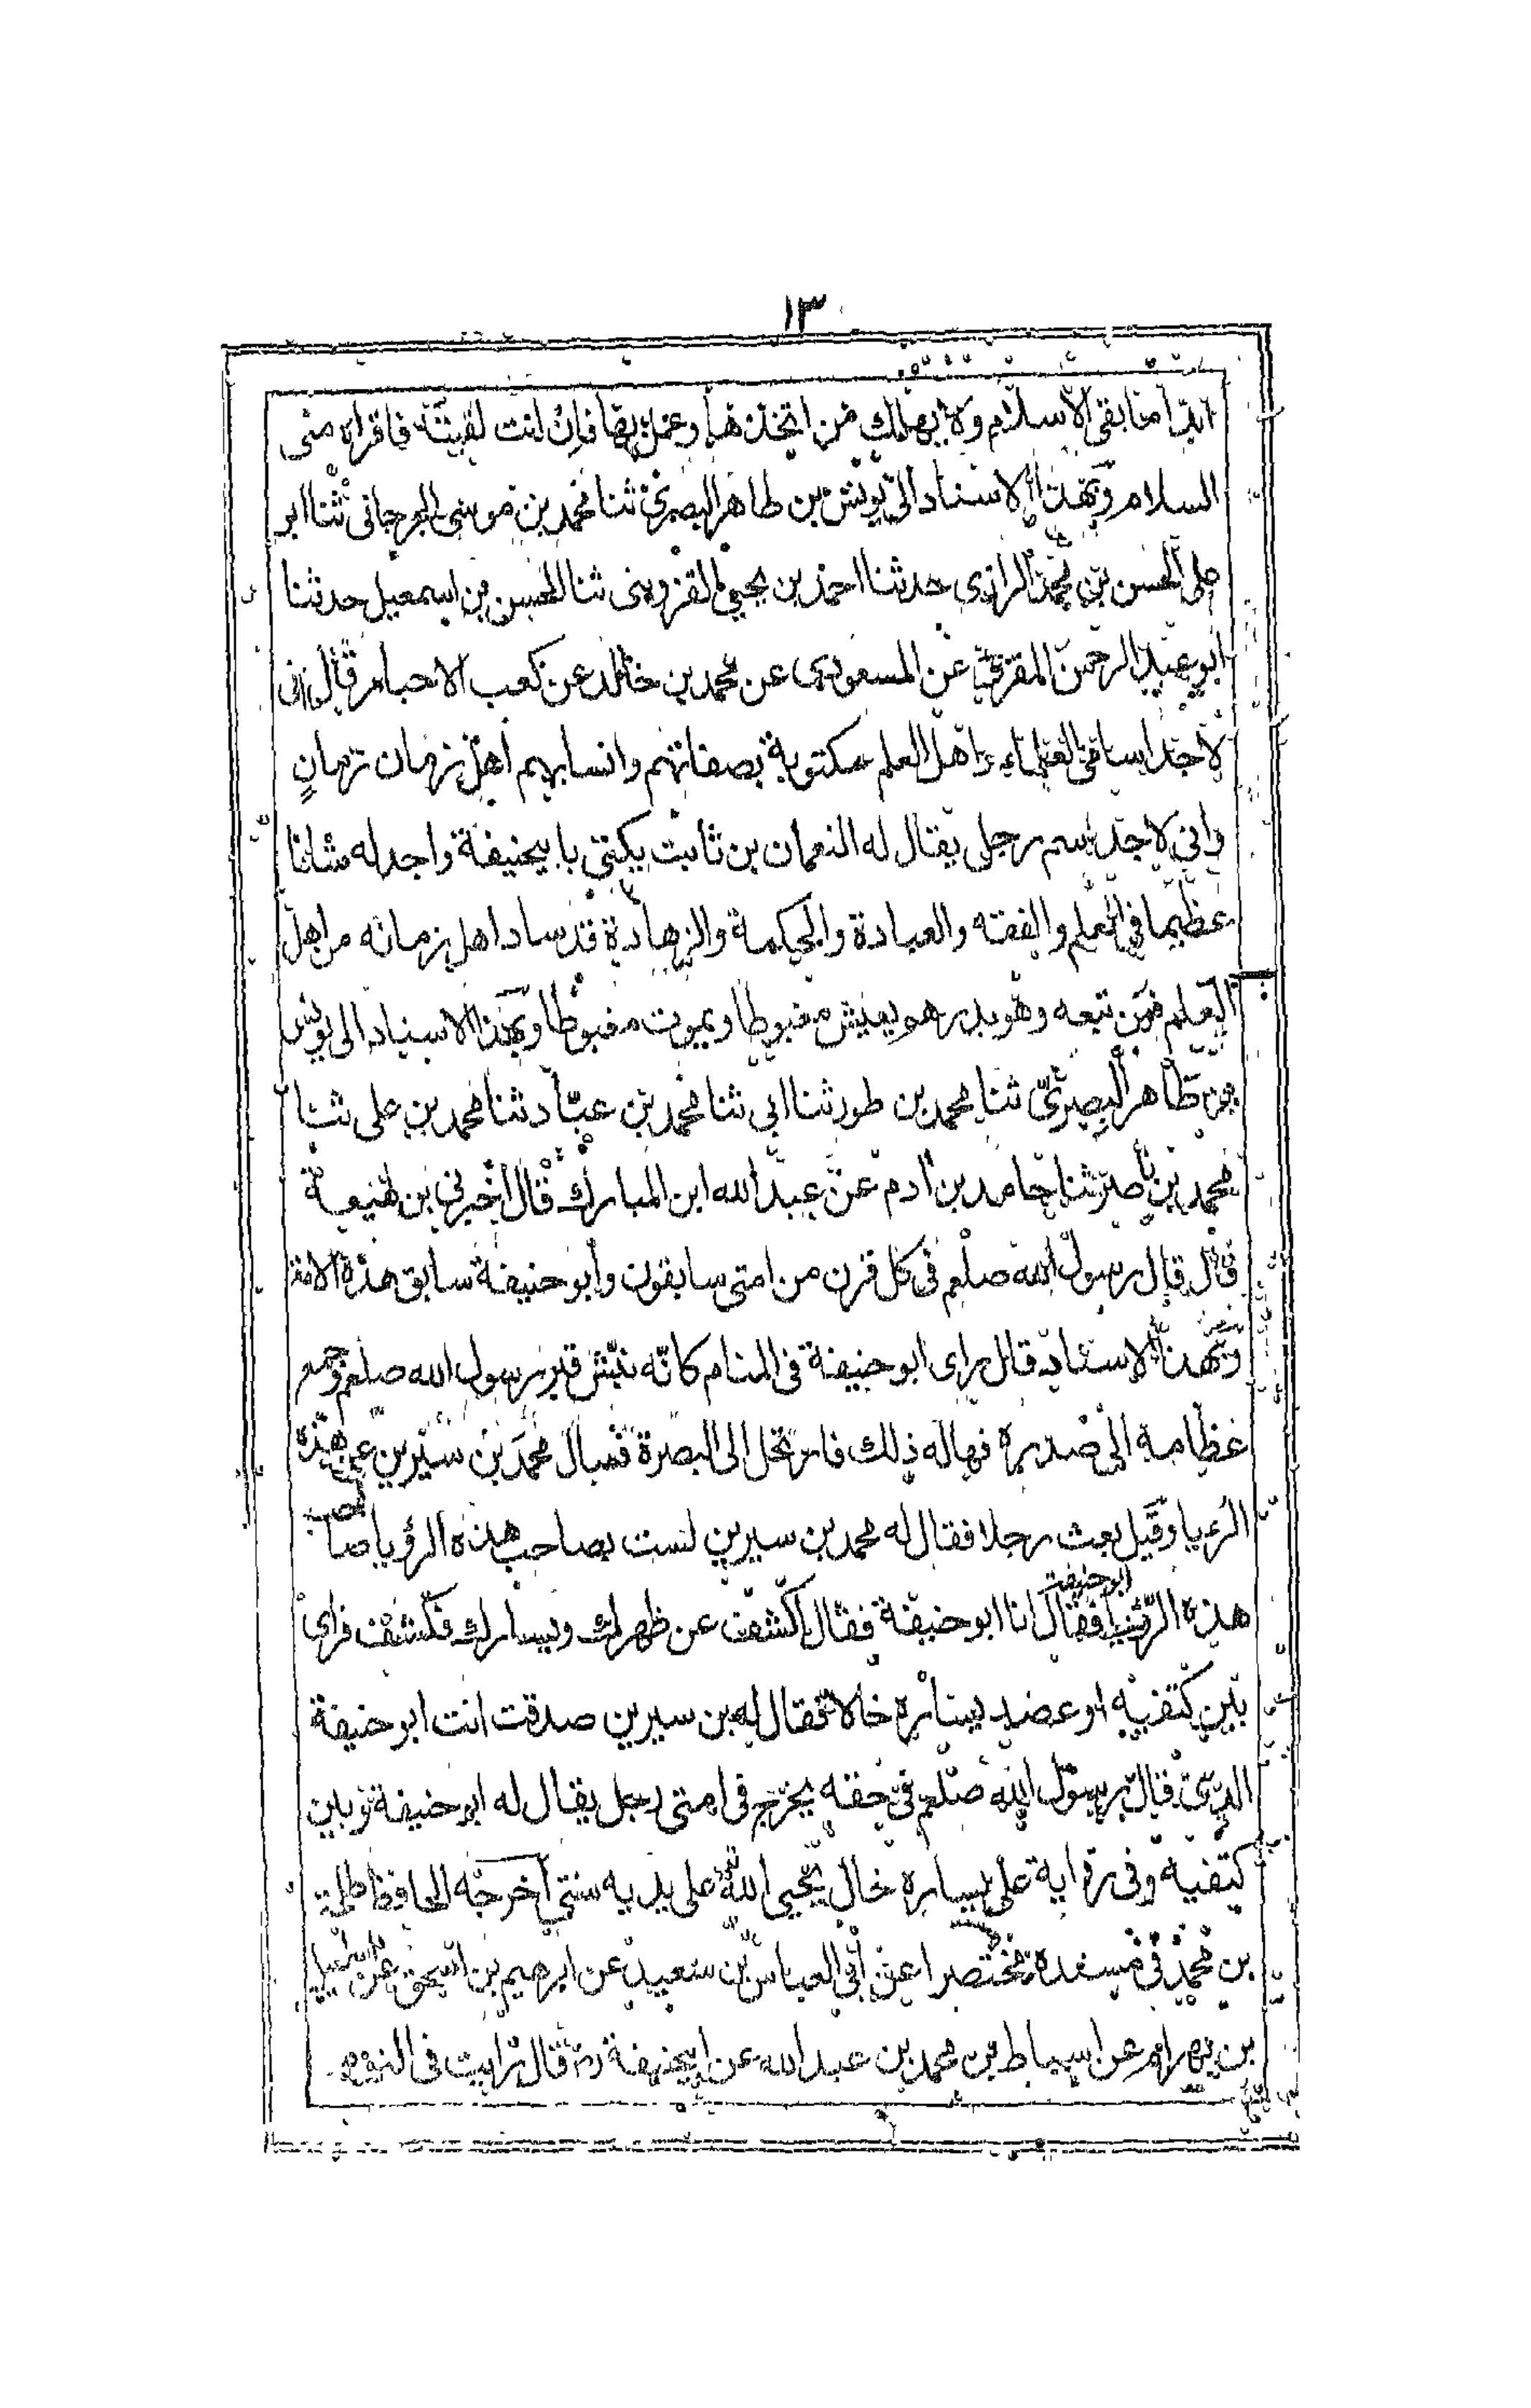 ١٣
ابدا ما بقى الاسلام ولا يهلك من اتخذها وعمل بها فان انت لقيته فاقراه منى
السلام وبهذا الاسناد الى يونس بن طاهر البصرى ثنا محمد بن موسى الجرجانى ثنا ابو
على الحسن بن محمد الرازى حدثنا احمد بن يحيى القزوينى ثنا الحسن بن اسمعيل حدثنا
ابو عبد الرحمن المقرى عن المسعودى عن محمد بن خالد عن كعب الاحبار قال انى
لاجد اسامى العلماء واهل العلم مكتوبة بصفاتهم وانسابهم اهل زمان زمانٍ
وانى لاجد اسم رجل يقال له النعمان بن ثابت يكنى بابيحنيفة واجد له شانا
عظيما فى العلم والفقه والعبادة والحكمة والزهادة قد ساد اهل زمانه من اهل
العلم فمن تبعه وهو بدرهو يعيش مغبوطا ويموت مغبوطا وبهذا الاسناد الى يونس
بن طاهر البصرى ثنا محمد بن طور ثنا ابى ثنا محمد بن عباد ثنا محمد بن على ثنا
محمد بن ناصر ثنا حامد بن ادم عن عبد الله ابن المبارك قال اخبرنى بن لهيعة
قال قال رسول الله صلعم فى كل قرن من امتى سابقون وابو حنيفة سابق هذه الامة
وبهذا الاسناد قال راى ابو حنيفة فى المنام كانه نبش قبر رسول الله صلعم وجمع
عظامه الى صدره فهاله ذلك فارتحل الى البصرة فسال محمد بن سيرين عن هذه
الرءيا وقيل بعث رجلا فقال له محمد بن سيرين لست بصاحب هذه الرؤيا صاحب
هذه الرؤيا ابو حنيفة فقال انا ابو حنيفة فقال اكشف عن ظهرك ويسارك فكشف فراى
بين كتفيه او عضد يساره خالا فقال له بن سيرين صدقت انت ابو حنيفة
الذى قال رسول الله صلعم فى حقه يخرج فى امتى رجل يقال له ابو حنيفة وبين
كتفيه وفى رواية على يساره خال يحيى الله على يديه سنتى اخرجه الحافظ طلحة
بن محمد فى مسنده مختصرا عن ابى العباس بن سعيد عن ابرهيم بن اسحق عن
بن بهرام عن اسباط بن محمد بن عبد الله عن ابيحنيفة رح قال رايت فى النوم